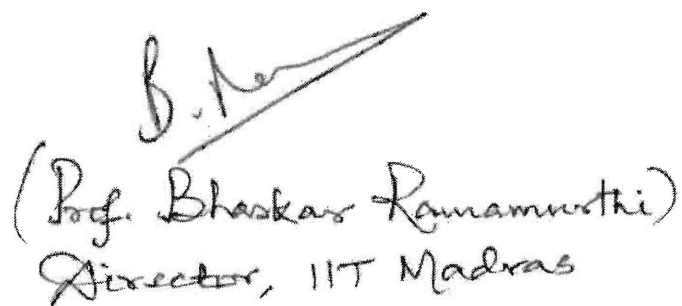 B. Ram
(Prof. Bhaskar Ramamurthi)
Director, IIT Madras